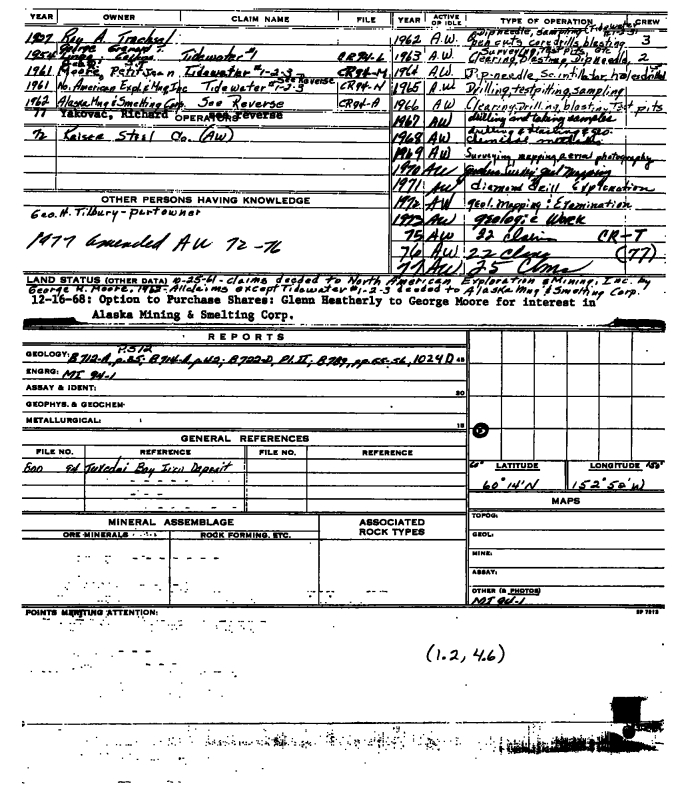 YEAR OWNER CLAIM NAME FILE YEAR ACTIVE OR IDLE TYPE OF OPERATION CREW
1907 Ray A. Trachsel
1954 Tidewater #1 CR94-L
1961 Moore, Petit Jean Tidewater #1-2-3 CR94-M
See Reverse
1961 No. American Expl & Mng Inc Tidewater #1-2-3 CR94-N
1962 Alaska Mng & Smelting Corp. See Reverse CR94-A
77 Yakovac, Richard See reverse
OPERATORS
72 Kaiser Steel Co. (AW)
1962 A.W. Dip needle, sampling (Tidewater #1-2-3)
open cuts core drills, blasting 3
Surveying, Test pits, etc
1963 A.W. Clearing, Blasting, Dip needle, 2
1964 A.W. Dip needle, Scintillator, hole drilled
1965 A.W. Drilling, test pitting, sampling
1966 A.W. Clearing, Drilling, blasting, Test pits
1967 AW drilling and taking samples
1968 AW drilling & blasting & geo-
chemical
1969 AW Surveying, mapping, aerial photography
1970 AW geol Mapping
1971 AW diamond drill Exploration
1972 AW geol. Mapping: Examination
1973 AW geologic Work
75 AW 22 Claim CR-T
76 AW 22 Clms (77)
77 AW 25 Clms
OTHER PERSONS HAVING KNOWLEDGE
Geo. H. Tilbury - part owner
1977 amended AW 72-76
LAND STATUS (OTHER DATA) 10-25-61 - claims deeded to North American Exploration & Mining, Inc. by
George H. Moore, 1962 - All claims except Tidewater #1-2-3 deeded to Alaska Mng & Smelting Corp.
12-16-68: Option to Purchase Shares: Glenn Heatherly to George Moore for interest in
Alaska Mining & Smelting Corp.
REPORTS
P.512
GEOLOGY: B 712-A, p.25; B 714-A, p.42; B 722-D, Pl. II; B 789, pp. 55-56, 1024D 45
ENGRG: MI 94-1
ASSAY & IDENT: 20
GEOPHYS. & GEOCHEM:
METALLURGICAL: 15
GENERAL REFERENCES
FILE NO. REFERENCE FILE NO. REFERENCE
94 Tuxedni Bay Iron Deposit
60° LATITUDE LONGITUDE 153°
60° 14'N 152° 50' W
MAPS
TOPOG:
GEOL:
MINE:
ASSAY:
OTHER (& PHOTOS)
MI 94-1
MINERAL ASSEMBLAGE ASSOCIATED ROCK TYPES
ORE MINERALS ROCK FORMING, ETC.
POINTS MERITING ATTENTION:
(1.2, 4.6)